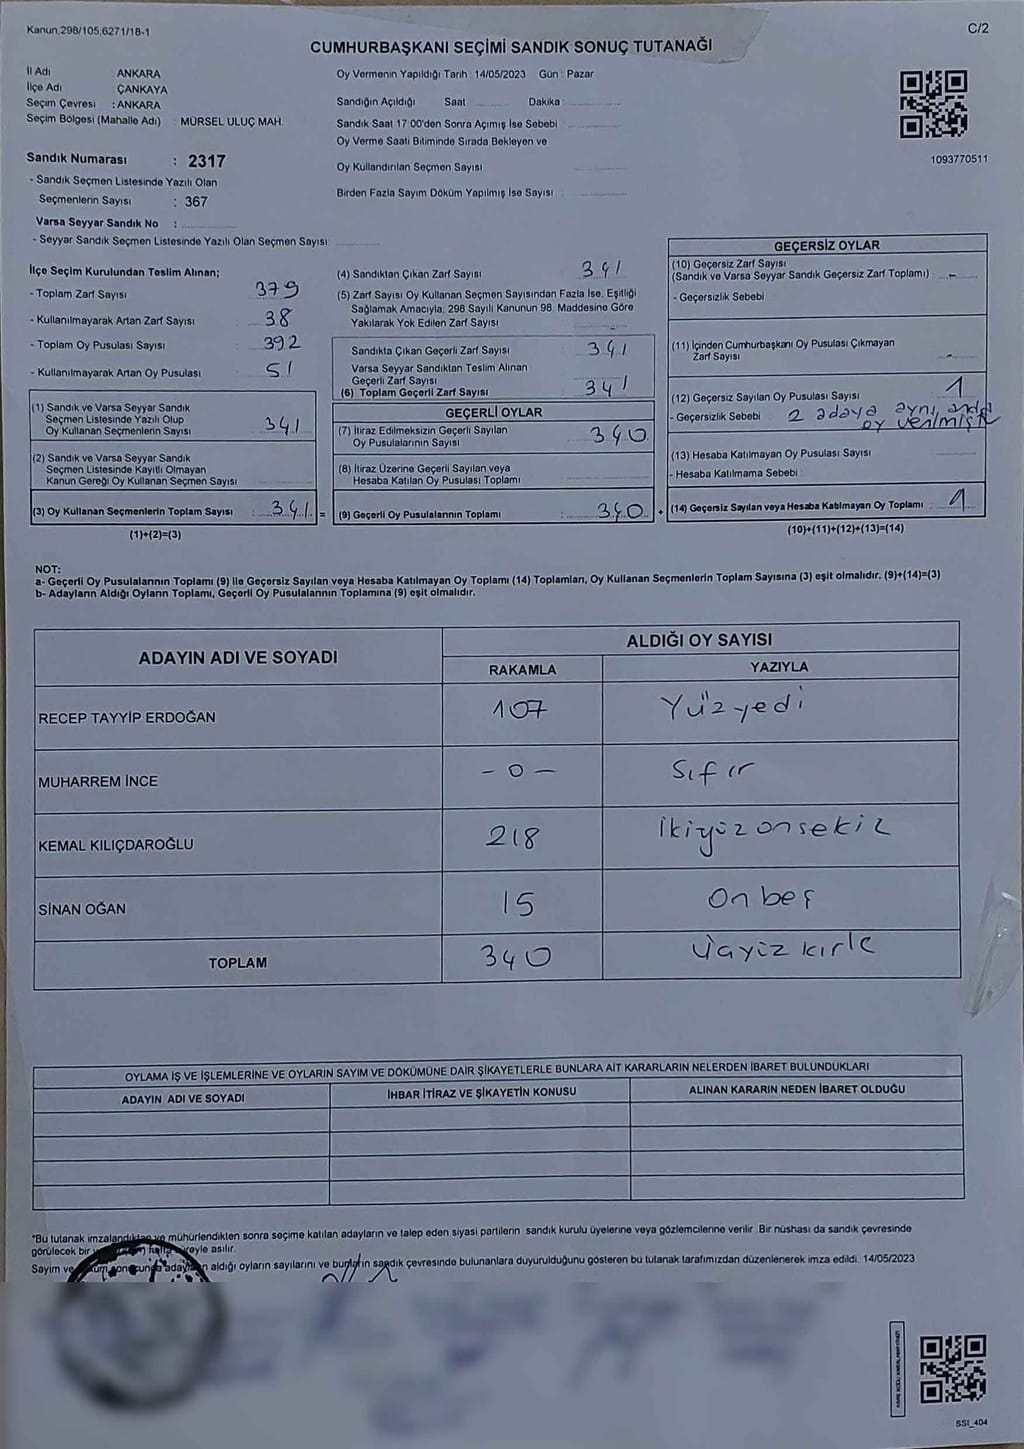 Kanun,298/105,6271/18-1
C/2
CUMHURBAŞKANI SEÇİMİ SANDIK SONUÇ TUTANAĞI
İl Adı : ANKARA
İlçe Adı : ÇANKAYA
Seçim Çevresi : ANKARA
Seçim Bölgesi (Mahalle Adı) : MÜRSEL ULUÇ MAH.
Sandık Numarası : 2317
- Sandık Seçmen Listesinde Yazılı Olan
Seçmenlerin Sayısı : 367
Varsa Seyyar Sandık No :
- Seyyar Sandık Seçmen Listesinde Yazılı Olan Seçmen Sayısı
Oy Vermenin Yapıldığı Tarih : 14/05/2023 Gün : Pazar
Sandığın Açıldığı Saat Dakika
Sandık Saat 17:00'den Sonra Açımış İse Sebebi
Oy Verme Saati Bitiminde Sırada Bekleyen ve
Oy Kullandırılan Seçmen Sayısı
Birden Fazla Sayım Döküm Yapılmış İse Sayısı
1093770511
İlçe Seçim Kurulundan Teslim Alınan;
- Toplam Zarf Sayısı 379
- Kullanılmayarak Artan Zarf Sayısı 38
- Toplam Oy Pusulası Sayısı 392
- Kullanılmayarak Artan Oy Pusulası 51
(1) Sandık ve Varsa Seyyar Sandık
Seçmen Listesinde Yazılı Olup
Oy Kullanan Seçmenlerin Sayısı 341
(2) Sandık ve Varsa Seyyar Sandık
Seçmen Listesinde Kayıtlı Olmayan
Kanun Gereği Oy Kullanan Seçmen Sayısı
(3) Oy Kullanan Seçmenlerin Toplam Sayısı : 341 =
(1)+(2)=(3)
(4) Sandıktan Çıkan Zarf Sayısı 341
(5) Zarf Sayısı Oy Kullanan Seçmen Sayısından Fazla İse, Eşitliği
Sağlamak Amacıyla, 298 Sayılı Kanunun 98. Maddesine Göre
Yakılarak Yok Edilen Zarf Sayısı
Sandıkta Çıkan Geçerli Zarf Sayısı 341
Varsa Seyyar Sandıktan Teslim Alınan
Geçerli Zarf Sayısı
(6) Toplam Geçerli Zarf Sayısı 341
GEÇERLİ OYLAR
(7) İtiraz Edilmeksizin Geçerli Sayılan
Oy Pusulalarının Sayısı 340
(8) İtiraz Üzerine Geçerli Sayılan veya
Hesaba Katılan Oy Pusulası Toplamı
(9) Geçerli Oy Pusulalarının Toplamı : 340 +
GEÇERSİZ OYLAR
(10) Geçersiz Zarf Sayısı
(Sandık ve Varsa Seyyar Sandık Geçersiz Zarf Toplamı) : -
- Geçersizlik Sebebi
(11) İçinden Cumhurbaşkanı Oy Pusulası Çıkmayan
Zarf Sayısı -
(12) Geçersiz Sayılan Oy Pusulası Sayısı 1
- Geçersizlik Sebebi 2 adaya aynı anda
oy verilmiştir
(13) Hesaba Katılmayan Oy Pusulası Sayısı
- Hesaba Katılmama Sebebi
(14) Geçersiz Sayılan veya Hesaba Katılmayan Oy Toplamı : 1
(10)+(11)+(12)+(13)=(14)
NOT:
a- Geçerli Oy Pusulalarının Toplamı (9) ile Geçersiz Sayılan veya Hesaba Katılmayan Oy Toplamı (14) Toplamları, Oy Kullanan Seçmenlerin Toplam Sayısına (3) eşit olmalıdır. (9)+(14)=(3)
b- Adayların Aldığı Oyların Toplamı, Geçerli Oy Pusulalarının Toplamına (9) eşit olmalıdır.
ADAYIN ADI VE SOYADI
ALDIĞI OY SAYISI
RAKAMLA YAZIYLA
RECEP TAYYİP ERDOĞAN 107 Yüzyedi
MUHARREM İNCE - 0 - Sıfır
KEMAL KILIÇDAROĞLU 218 İkiyüzonsekiz
SİNAN OĞAN 15 Onbeş
TOPLAM 340
OYLAMA İŞ VE İŞLEMLERİNE VE OYLARIN SAYIM VE DÖKÜMÜNE DAİR ŞİKAYETLERLE BUNLARA AİT KARARLARIN NELERDEN İBARET BULUNDUKLARI
ADAYIN ADI VE SOYADI İHBAR İTİRAZ VE ŞİKAYETİN KONUSU ALINAN KARARIN NEDEN İBARET OLDUĞU
*Bu tutanak imzalandıktan ve mühürlendikten sonra seçime katılan adayların ve talep eden siyasi partilerin sandık kurulu üyelerine veya gözlemcilerine verilir. Bir nüshası da sandık çevresinde
görülecek bir hafta süreyle asılır.
Sayım ve sonucunda adayların aldığı oyların sayılarını ve bunların sandık çevresinde bulunanlara duyurulduğunu gösteren bu tutanak tarafımızdan düzenlenerek imza edildi. 14/05/2023
SSI_404